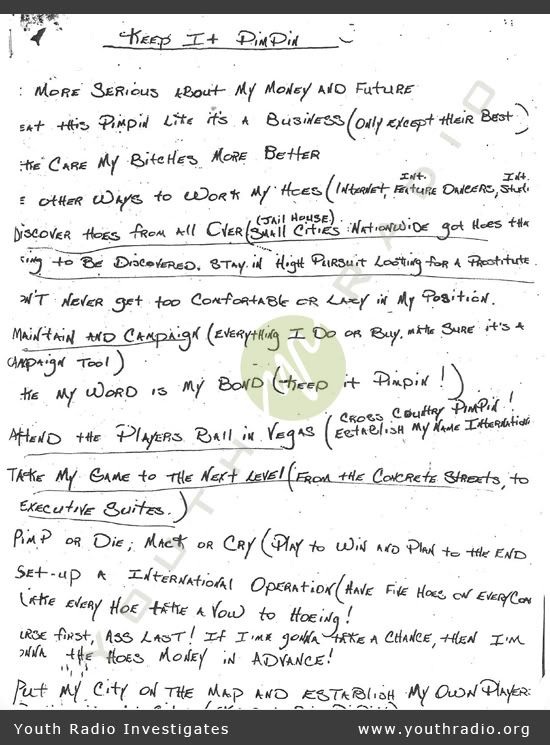 Keep It Pimpin
: More Serious About My Money and Future
eat this Pimpin Like it's a Business (Only Except their Best)
ke Care My Bitches More Better
Int. Int.
e other Ways to Work My Hoes (Internet, Feature Dancers, Studi
(Jail House)
Discover Hoes from all Over (Small Cities Nationwide got Hoes tha
ing to Be Discovered. Stay in High Pursuit Looking for a Prostitute.
on't never get too Comfortable or Lazy in My Position.
Maintain and Campaign (Everything I Do or Buy. make sure it's a
Campaign Tool)
ke My Word is My Bond (Keep it Pimpin!)
Attend the Players Ball in Vegas (Cross Country Pimpin!
Establish My Name Internation
Take My Game to the Next Level (From the Concrete Streets, to
Executive Suites.)
Pimp or Die; Mack or Cry (Play to Win and Plan to the End
Set-up a International Operation (Have Five Hoes on Every Con
Make every Hoe take a Vow to Hoeing!
urse first, Ass Last! If I'ma gonna take a chance, then I'm
onna the Hoes Money in Advance!
Put My City on the Map and Establish My Own Player:
YOUTH RADIO
Youth Radio Investigates
www.youthradio.org